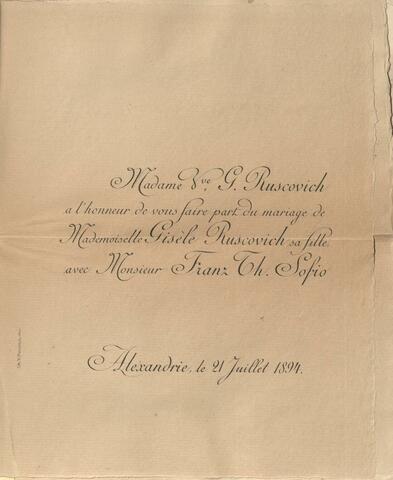 Madame Vve G. Ruscovich
a l'honneur de vous faire part du mariage de
Mademoiselle Gisèle Ruscovich sa fille
avec Monsieur Franz Th. Sofio
Alexandrie, le 21 Juillet 1894.